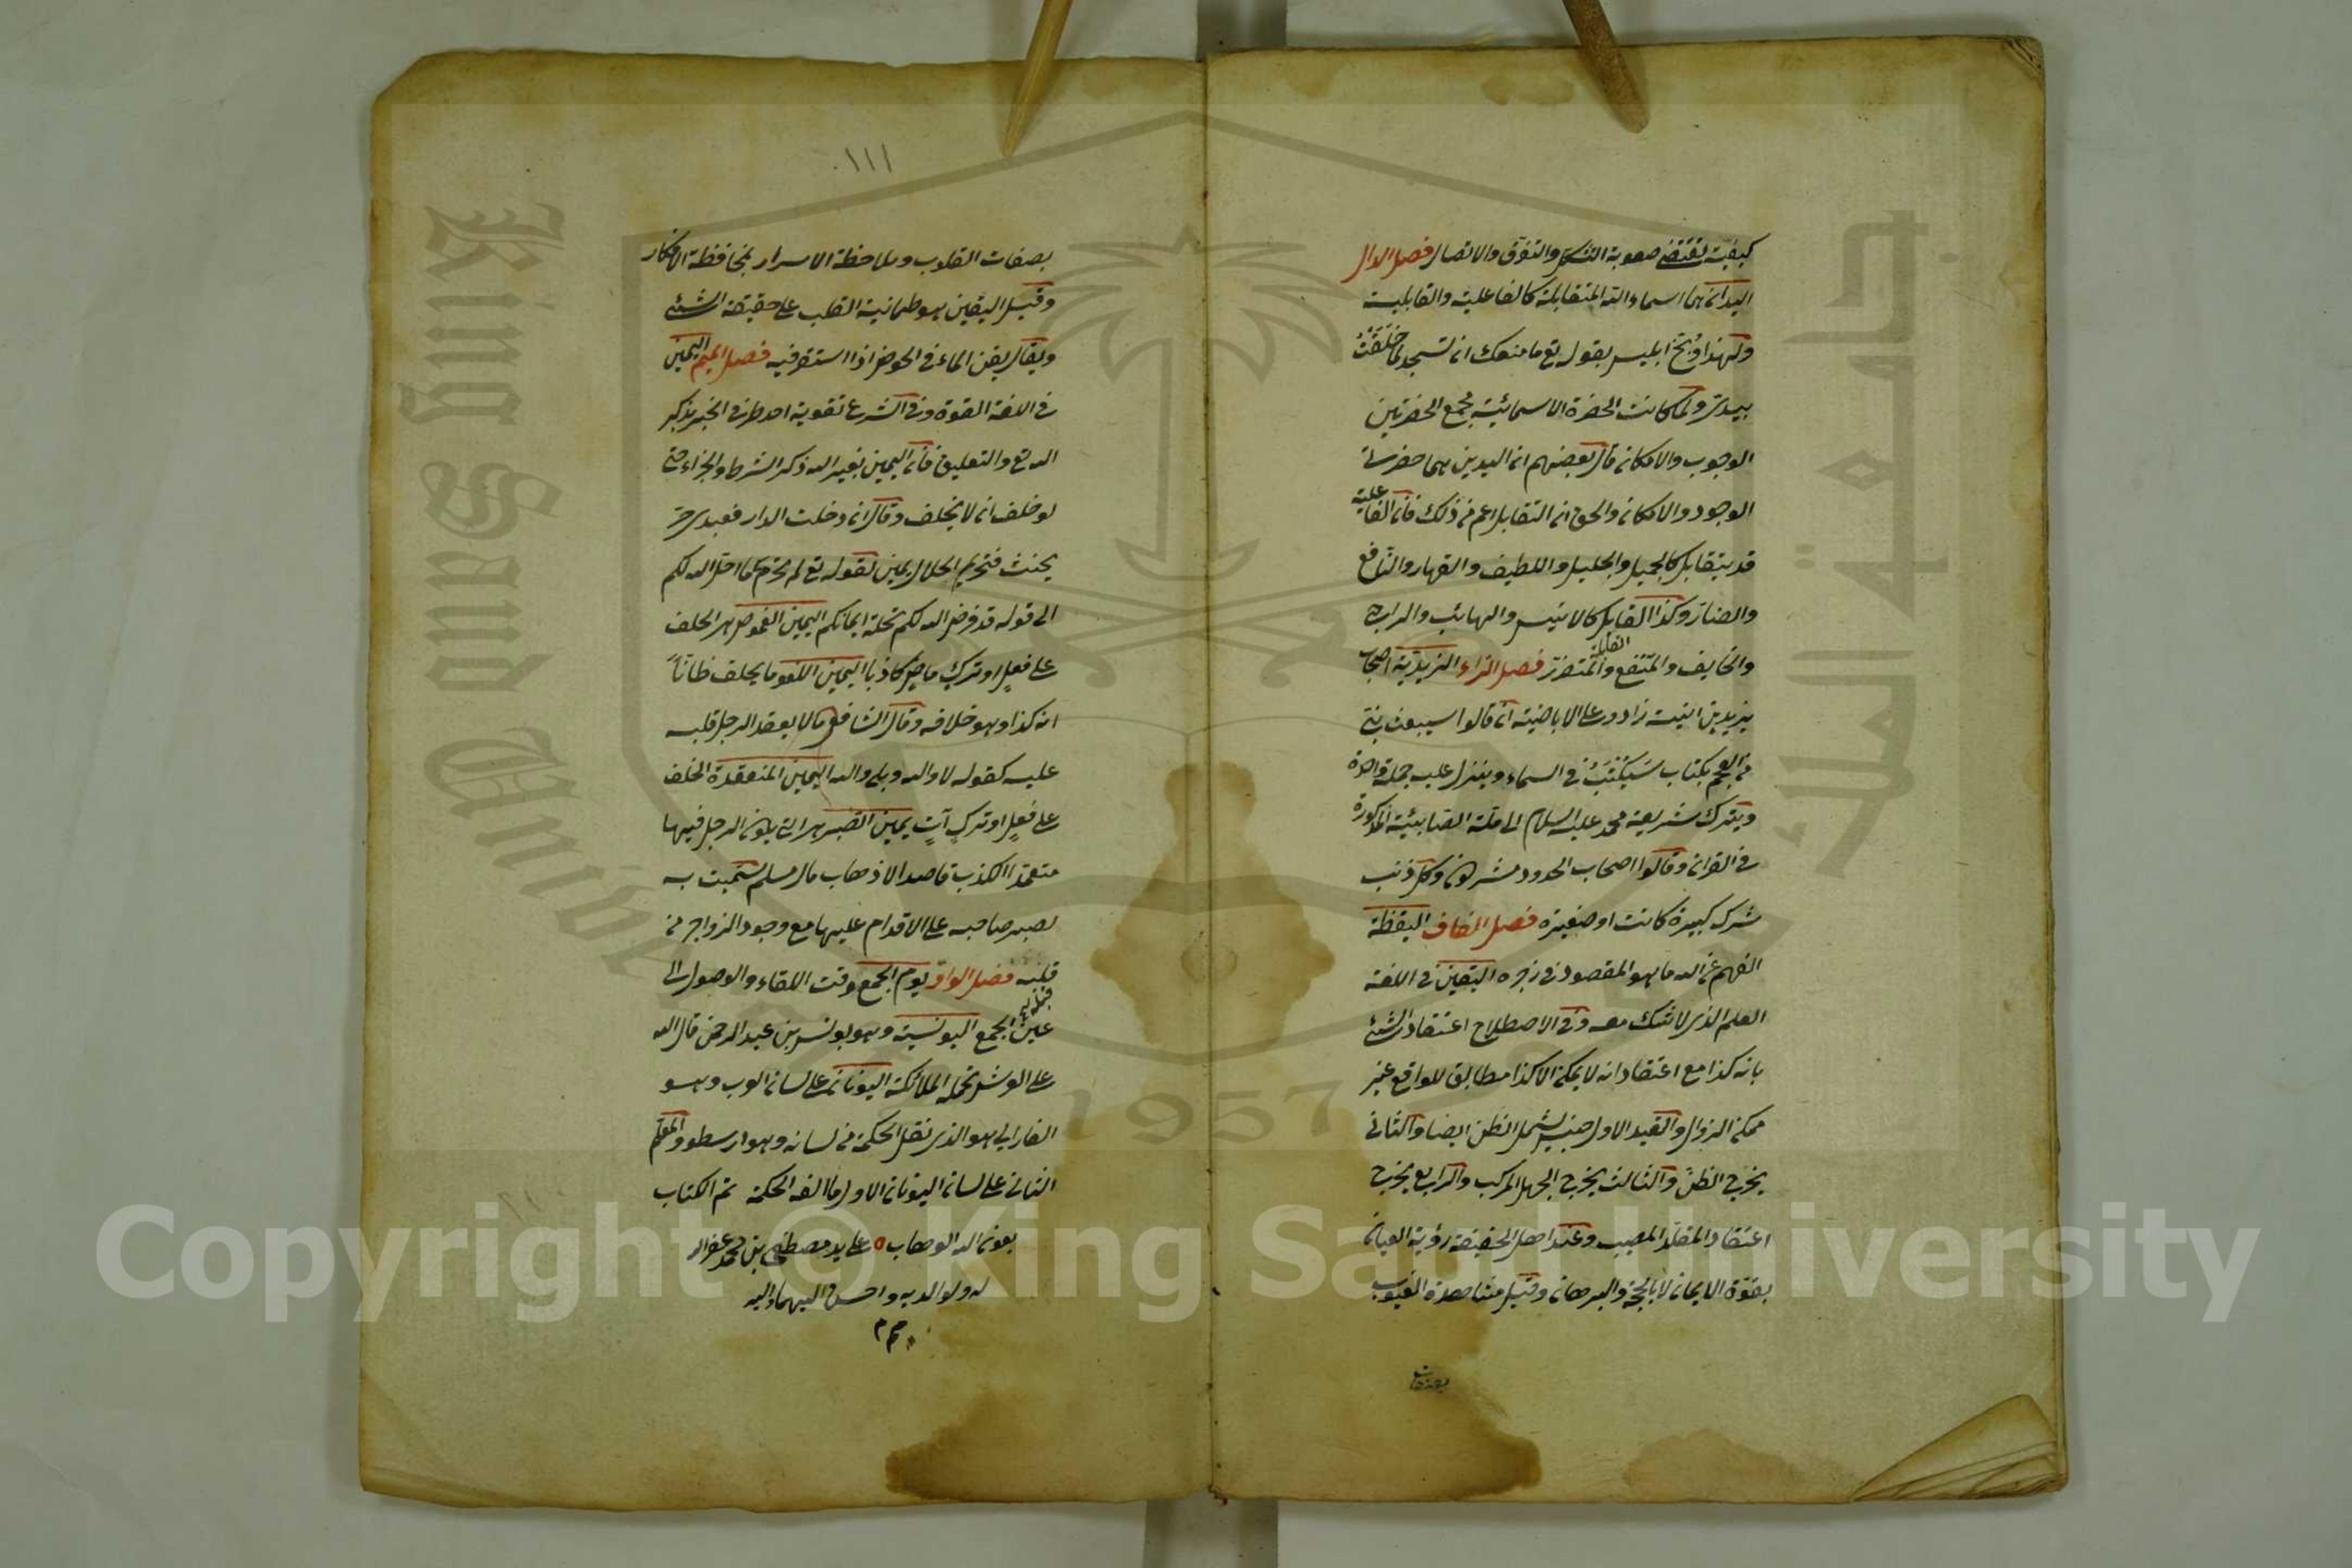 كيفيّة تقتضي صعوبة التشكل والتفرّق والاتصال فصل الدال
اليدان هما اسماء الله المتقابلة كالفاعلية والقابلية
ولهذا وُبّخ ابليس بقوله تع ما منعك ان تسجد لما خَلَقْتُ
بيدىّ ولمّا كانت الحضرة الاسمائيّة مجمع الحضرتين
الوجوب والامكان قال بعضهم ان اليدين هما حضرتا
الوجود والامكان والحق ان التقابل اعم من ذلك فان الفاعلية
قد يتقابل كالجميل والجليل واللطيف والقهار والنافع
والضارّ وكذا القابل كالانيس والهائب والراجي
والخايف والمنتفع والمتضرّر القابلة فصل الزاء اليزيديّة اصحاب
يزيد بن انيسة زادو على الاباضية ان قالوا سيبعث نبي
من العجم بكتاب سَيُكْتَبُ في السماء وينزل عليه جملة واحدة
ويترك شريعة محمد عليه السلام الى ملّة الصابئيّة المذكورة
في القران وقالوا اصحاب الحدود مشركون وكل ذنب
شرك كبيرة كانت او صغيرة فصل القاف اليقظة
الفهم عن الله ما هو المقصود في زجره اليقين في اللغة
العلم الذي لا شك معه وفي الاصطلاح اعتقاد الشئ
بانه كذا مع اعتقاد انه لا يمكن الا كذا مطابق للواقع غير
ممكن الزوال والقيد الاول جنس يشمل الظن ايضا والثاني
يخرج الظنّ والثالث يخرج الجهل المركب والرابع يخرج
اعتقاد المقلّد المصيب وعند اهل الحقيقة رؤية العيان
بقوّة الايمان لا بالحجّة والبرهان وقيل مشاهدة الغيوب
بصفات
١١١
بصفات القلوب وملاحظة الاسرار بمحافظة الافكار
وقيل اليقين هو طمانية القلب على حقيقة الشئ
ويقال يقن الماء في الحوض اذا استقر فيه فصل الميم اليمين
في اللغة القوة وفي الشرع تقوية احد طرفي الخبر بذكر
الله تع والتعليق فان اليمين بغير الله ذكر الشرط والجزاء حتى
لو حلف ان لا يحلف وقال ان دخلت الدار فعبدي حرّ
يحنث فتحريم الحلال يمين لقوله تع لم تحرّم ما احل الله لكم
الى قوله قد فرض الله لكم تحلة ايمانكم اليمين الغموض هو الحلف
على فعلٍ او تركٍ ماضٍ كاذبا اليمين اللغو ما يحلف ظانّاً
انه كذا وهو خلافه وقال الشافعي ما لا يعقد الرجل قلبه
عليه كقوله لا والله وبلى والله اليمين المنعقدة الحلف
على فعلٍ او تركٍ آتٍ يمين الصبر هو التي يكون الرجل فيها
متعمّدا الكذب قاصدا لاذهاب مال مسلم سمّيت به
لصبر صاحبه على الاقدام عليها مع وجود الزواجر من
قلبه فصل الواو يوم الجمع وقت اللقاء والوصول الى
عين الجمع اليونسية وهو يونس بن عبد الرحمن قال الله
على العرش تحمله الملائكة اليونان على لسان العرب وهو
الفارابي هو الذي نقل الحكمة من لسانه وهو ارسطو والمعلّم
الثاني على لسان اليونان الاول ما الفه الحكمة تم الكتاب
بعون الله الوهاب ٥ على يد مصطفى بن محمد غفر الله
له ولوالديه واحسن اليهما واليه
م م